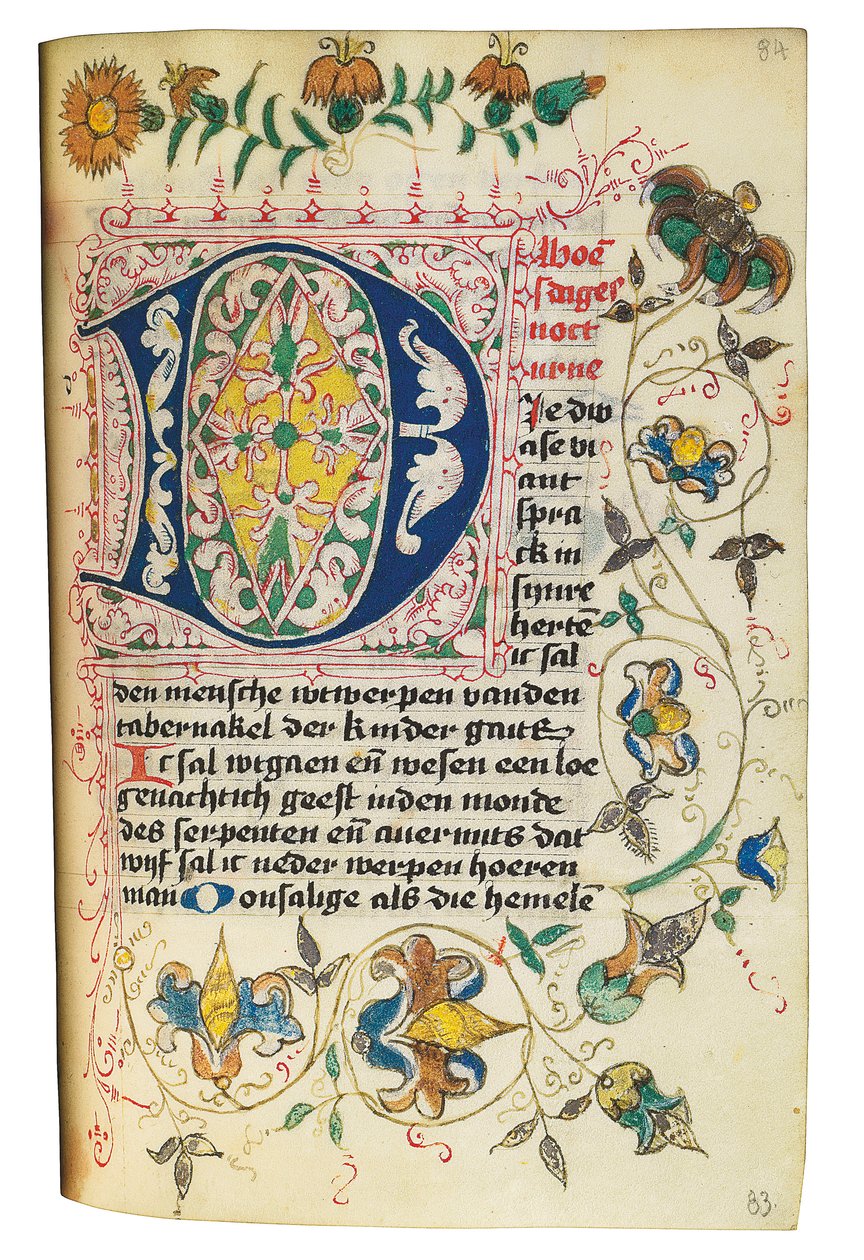 84
Woē
sdages
noct
urne
DIe dw
ase vi
ant
spra
ck in
synre
hertē
ic sal
den mensche wtwerpen vanden
tabernakel der kinder gaits
Ic sal wtgaen en̄ wesen een loe
genachtich geest inden monde
des serpenten en̄ auermits dat
wyf sal ic neder werpen hoeren
man O onsalige als die hemelē
83.